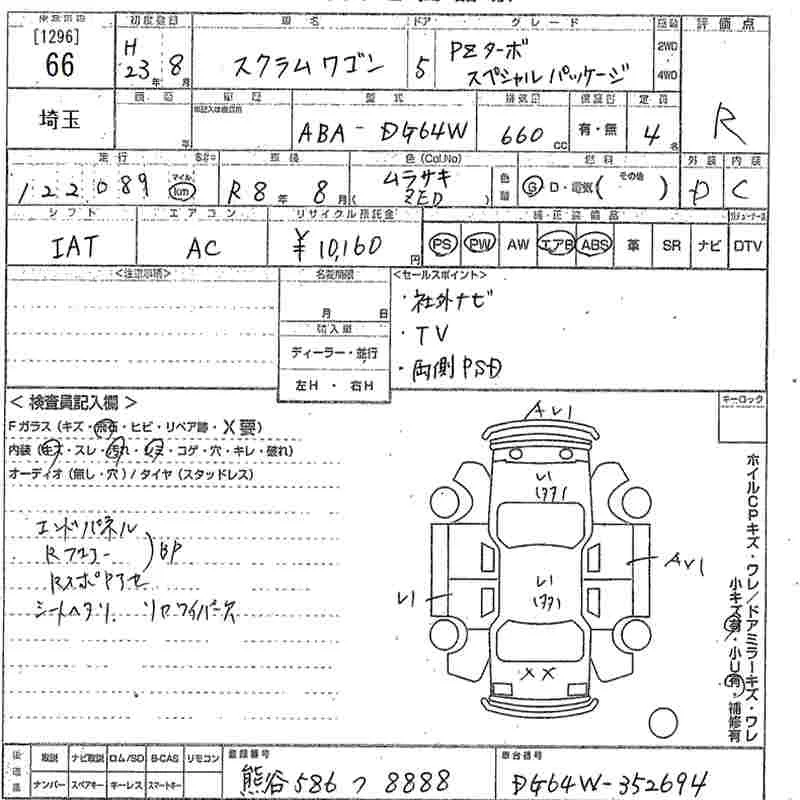 [1296]
66
初度登録
車名
ドア
グレード
評価点
H
23年 8月
スクラムワゴン
5
PZターボ
スペシャルパッケージ
2WD
4WD
R
埼玉
型式
排気量
定員
ABA-DG64W
660cc
有・無
4名
走行
車検
色(Col.No)
燃料
その他
外装
内装
122089
マイル
km
R8年 8月
ムラサキ
ZED
G・D・電気( )
D
C
シフト
エアコン
リサイクル預託金
純正装備品
IAT
AC
¥10,160円
PS
PW
AW
エアB
ABS
革
SR
ナビ
DTV
<注意事項>
名変期限
月 日
輸入車
ディーラー・並行
左H・右H
<セールスポイント>
・社外ナビ
・TV
・両側PSD
<検査員記入欄>
キーロック
Fガラス(キズ・飛石・ヒビ・リペア跡・X要)
内装(キズ・スレ・汚れ・シミ・コゲ・穴・キレ・破れ)
オーディオ(無し・穴)/タイヤ(スタッドレス)
エンドパネル
Rフロアー
BP
シートヘタリ. リヤワイパー欠
AU1
U1
U1
AU1
U1
XX
ホイルCPキズ・ワレ/ドアミラーキズ・ワレ
小キズ有・小U有・補修有
後送品
取説
ナビ取説
ロム/SD
B-CAS
リモコン
ナンバー
スペアキー
キーレス
スマートキー
登録番号
熊谷 586 つ 8888
車台番号
DG64W-352694